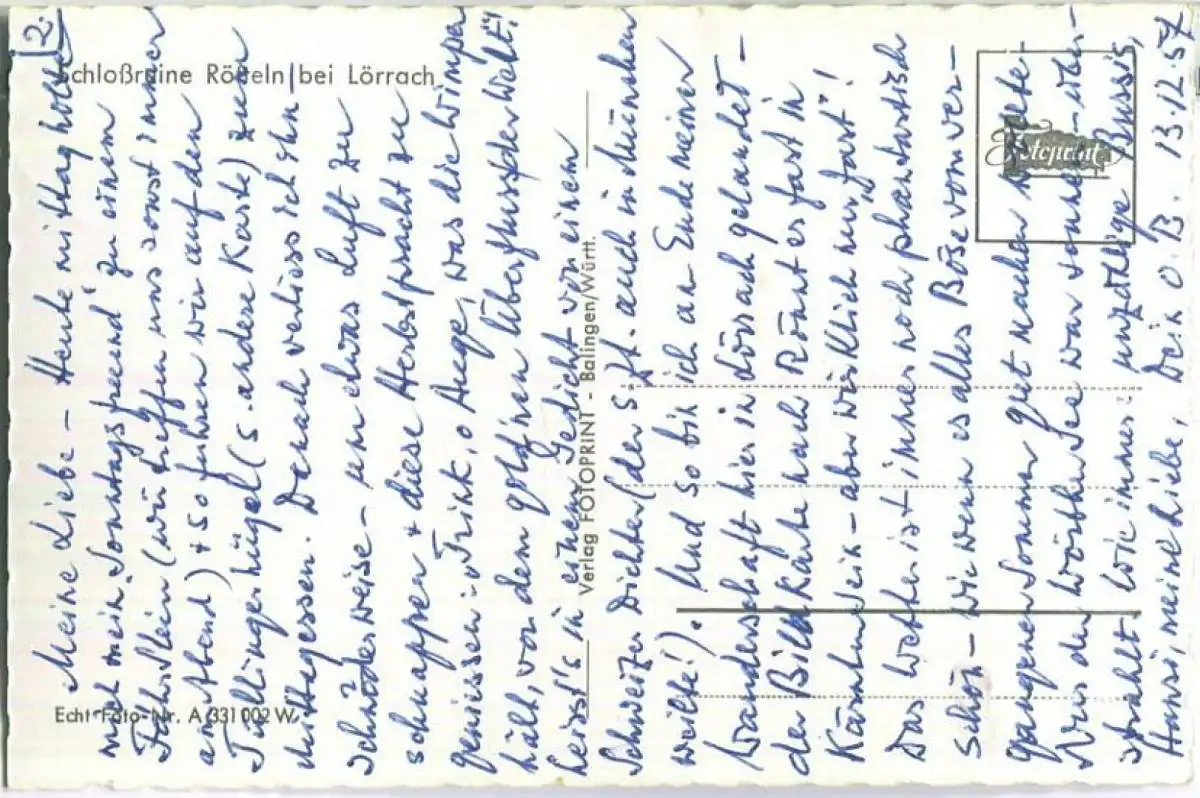 2.
Meine Liebe – Heute mittag holte
mich mein "Sonntagsfreund" zu einem
Fährtlein (wir treffen uns sonst immer
am Abend) + so fuhren wir auf den
Tüllingerhügel (s. andere Karte) zum
Mittagessen. Danach verliess ich ihn –
schnöderweise – um etwas Luft zu
schnappen + diese Herbstpracht zu
geniessen: "Trink, o Auge, was die Wimper
hält, von dem gold'nen Überfluss der Welt!"
heisst's in einem Gedicht von einem
Schweizer Dichter (der s. Zt. auch in München
weilte!). Und so bin ich am Ende meiner
Wanderschaft hier in Lörrach gelandet –
der Bildkarte nach könnt es fast in
Kärnten sein – aber wirklich nur "fast"!
Das Wetter ist immer noch phantastisch
schön – wie wenn es alles Böse vom ver-
gangenen Sommer gut machen möchte.
Nur der Wörther See war sonnen-über-
strahlt wie immer. unzählige Bussis,
Hansi, meine Liebe, Dein O. B. 13.12.57
Schloßruine Rötteln bei Lörrach
Echt Foto-Nr. A 331002 W
Verlag FOTOPRINT - Balingen/Württ.
Fotoprint